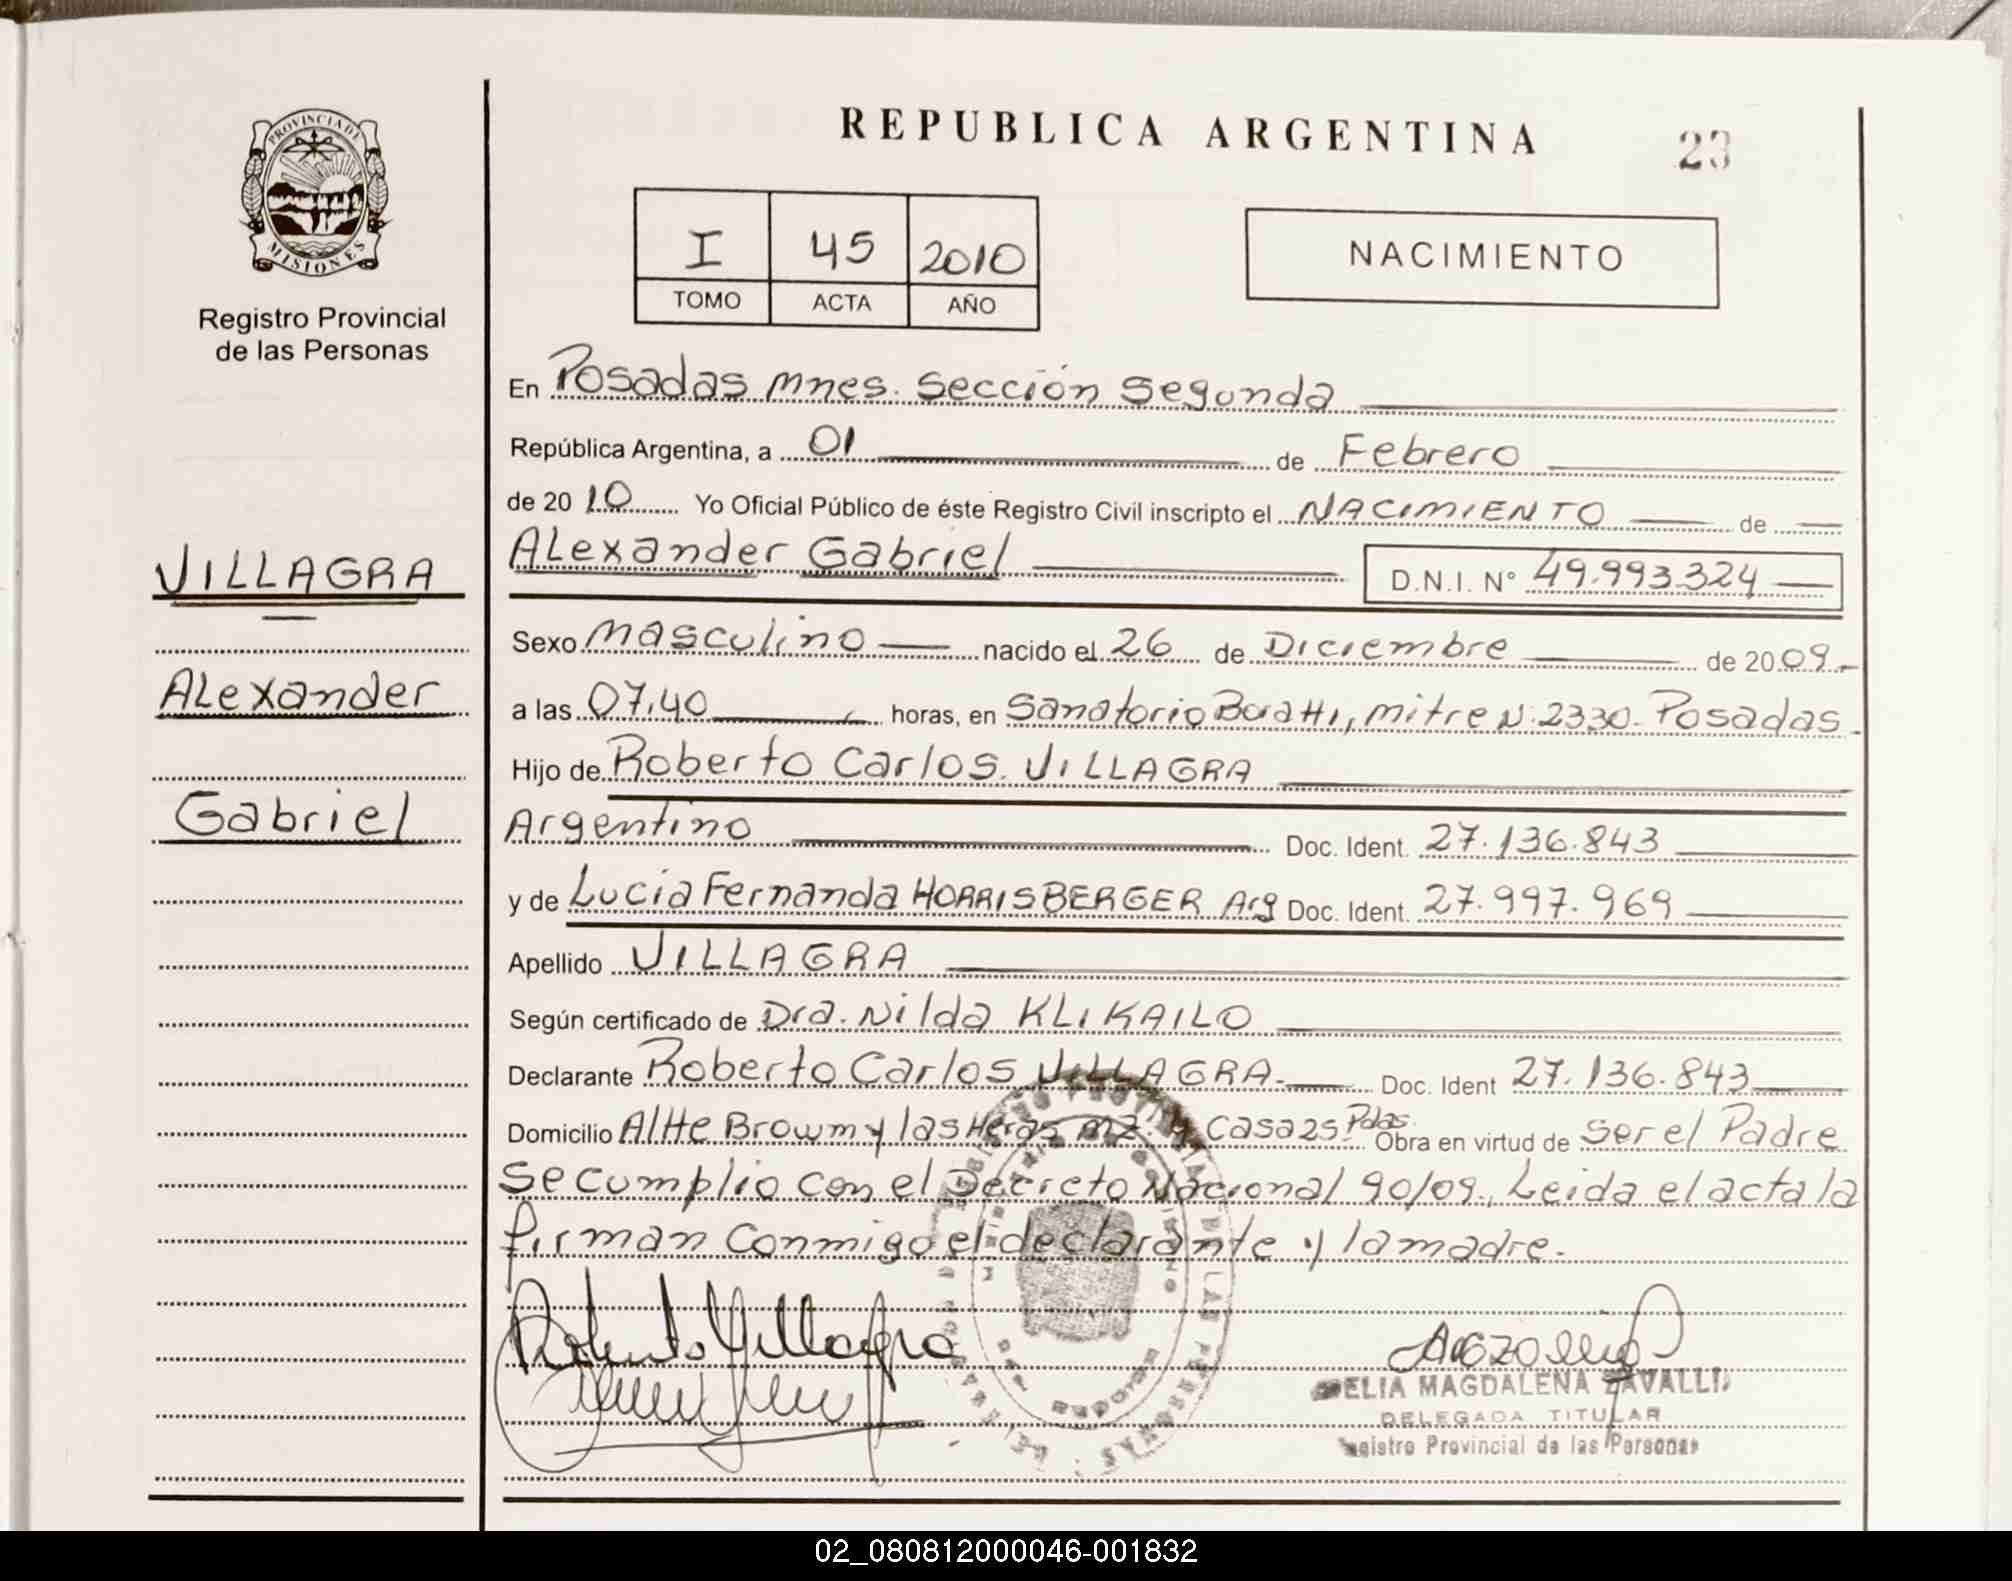 PROVINCIA DE
MISIONES
Registro Provincial
de las Personas
VILLAGRA
Alexander
Gabriel
REPUBLICA ARGENTINA
23
I 45 2010
TOMO ACTA AÑO
NACIMIENTO
En Posadas Mnes. Sección Segunda
República Argentina, a 01 de Febrero
de 2010 Yo Oficial Público de éste Registro Civil inscripto el NACIMIENTO de
Alexander Gabriel D.N.I. N° 49.993.324
Sexo Masculino nacido el 26 de Diciembre de 2009.-
a las 07,40 horas, en Sanatorio Boratti, Mitre N: 2330. Posadas.
Hijo de Roberto Carlos. VILLAGRA
Argentino Doc. Ident. 27.136.843
y de Lucia Fernanda HORRISBERGER Arg Doc. Ident. 27.997.969
Apellido VILLAGRA
Según certificado de Dra. Nilda KLIKAILO
Declarante Roberto Carlos VILLAGRA.- Doc. Ident 27.136.843
Domicilio Altte Browm y las Heras MZ. 4 Casa 25- Pdas. Obra en virtud de Ser el Padre
Se cumplio con el Decreto Nacional 90/09., Leida el acta la
firman conmigo el declarante y la madre.
Roberto Villagra
ELIA MAGDALENA ZAVALLI
DELEGADA TITULAR
Registro Provincial de las Personas
02_080812000046-001832